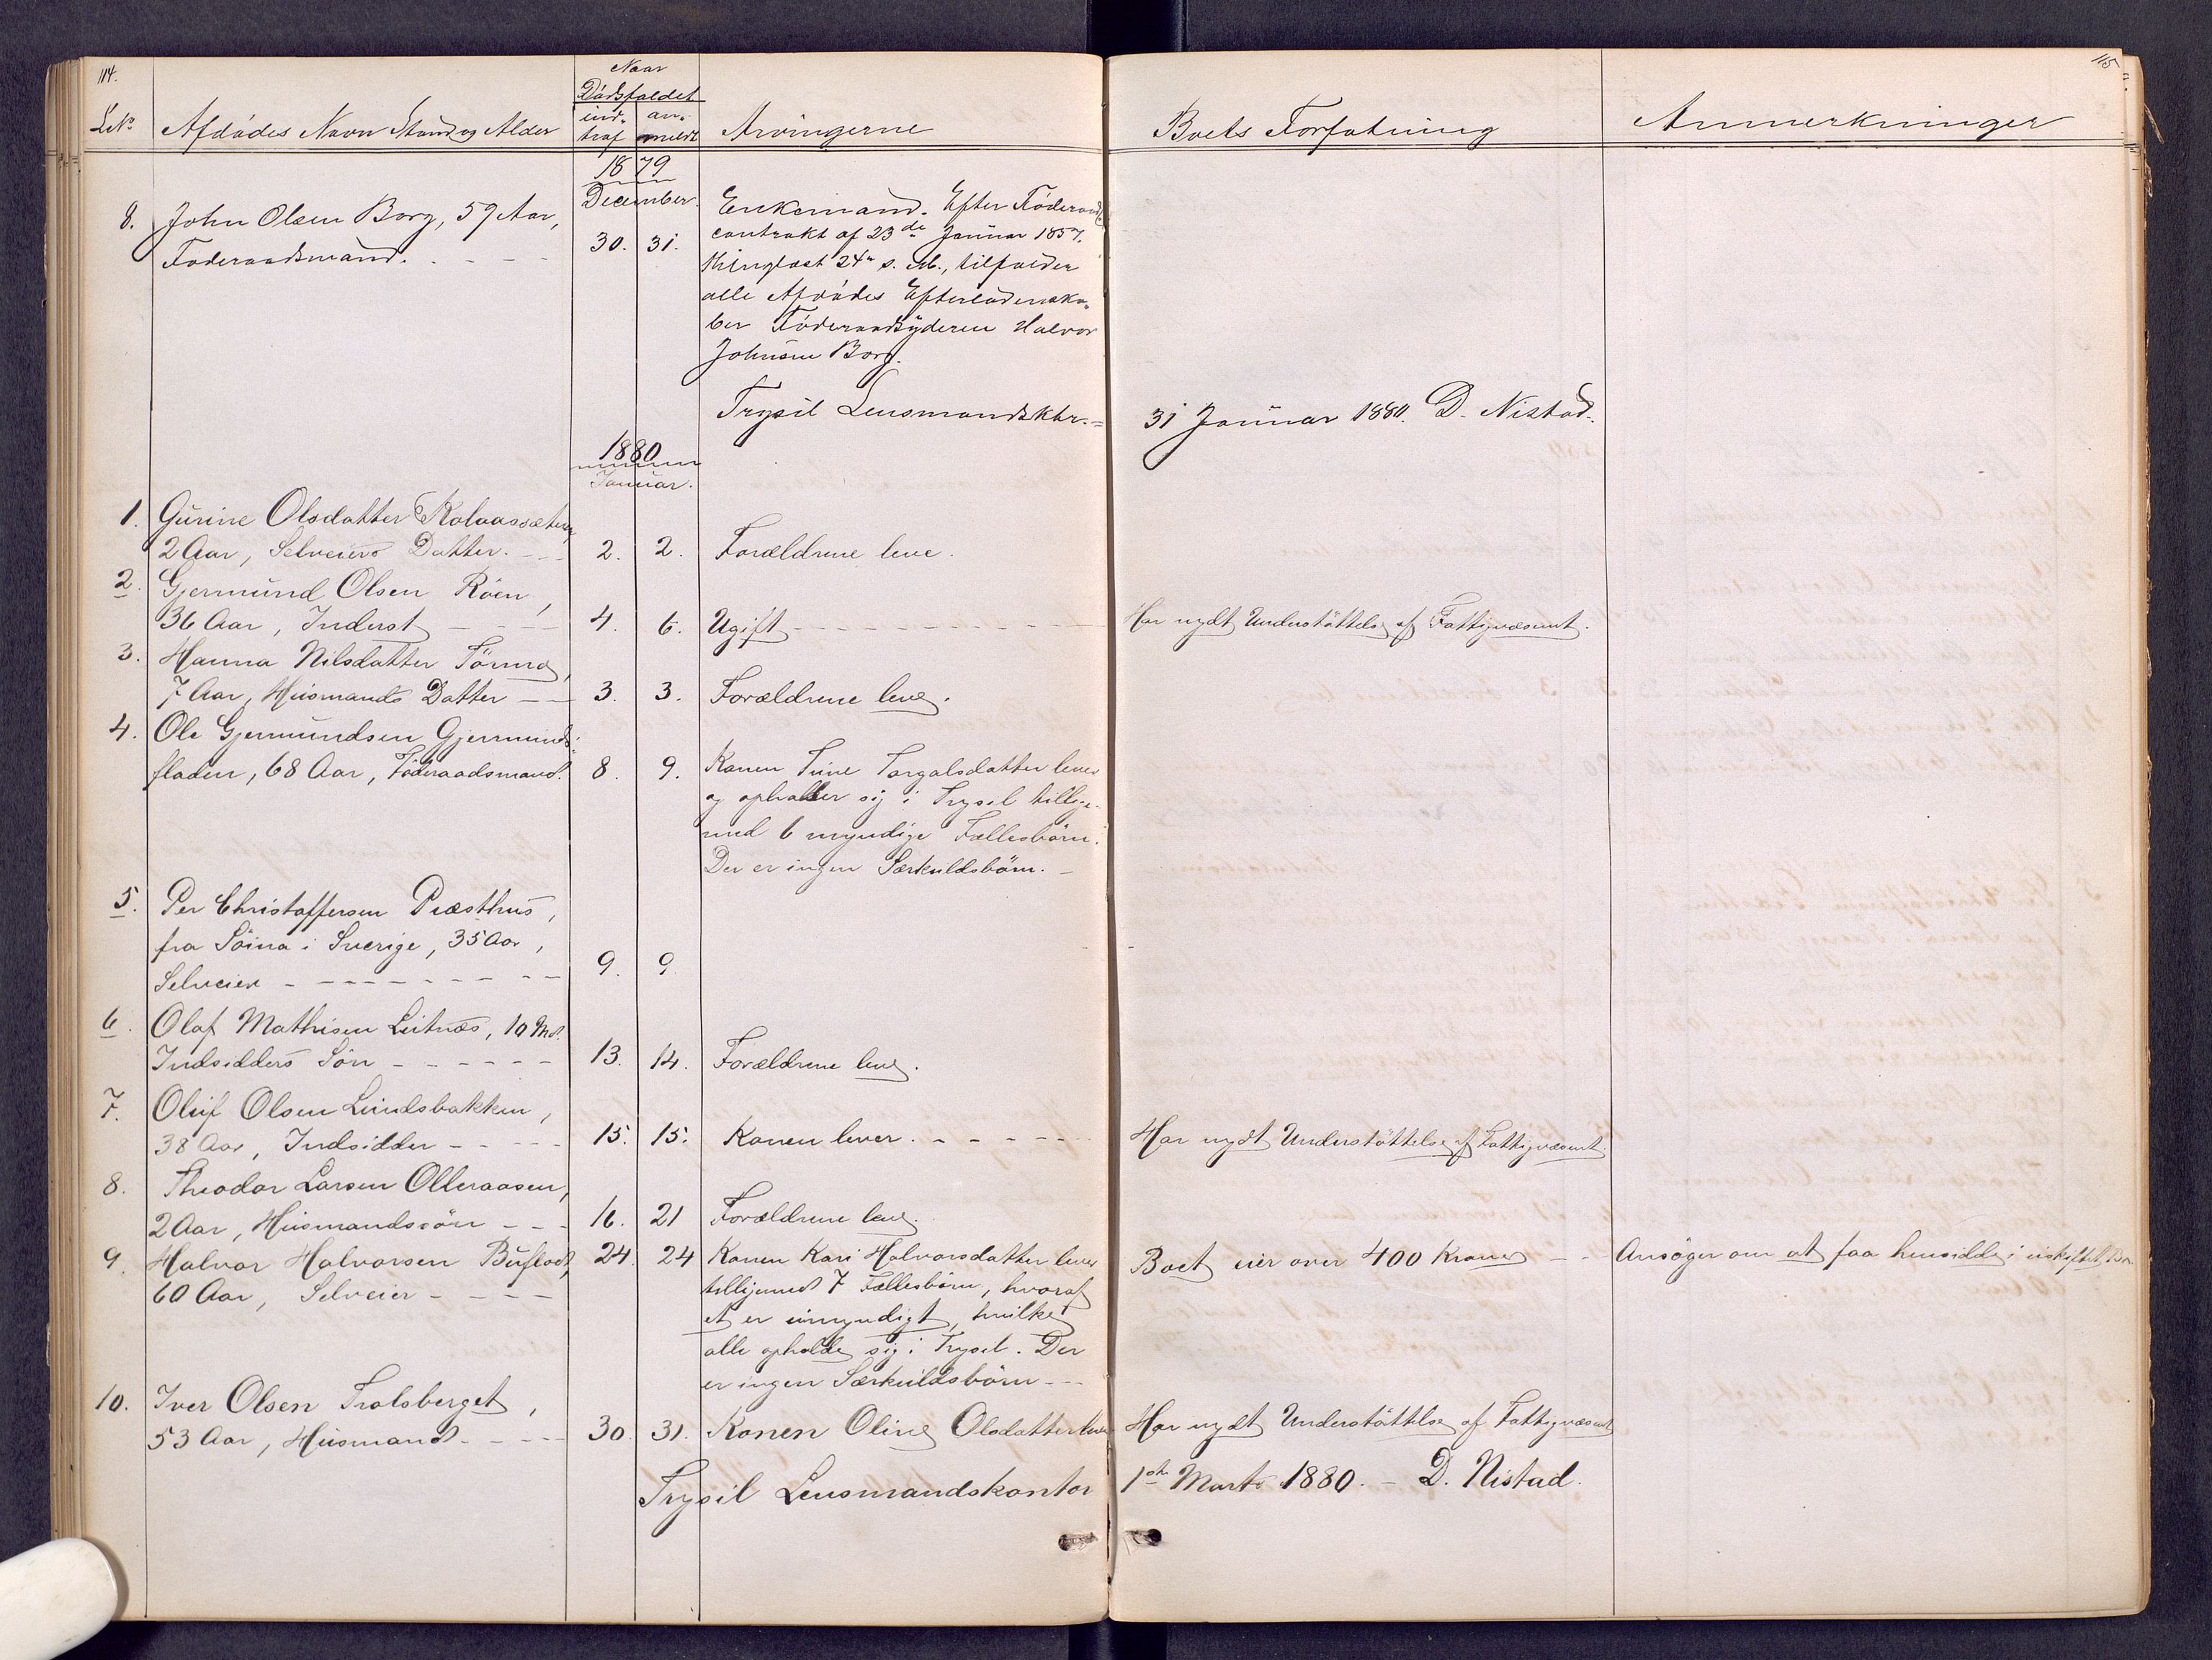 114.
115
Naar
Dødsfaldet
LN°
Afdødes Navn Stand og Alder
ind-
traf
an-
meldt
Arvingerne
Boets Forfatning
Anmerkninger
1879
December.
8. John Olsen Borg, 59 Aar,
Føderaadsmand. 30. 31.
Enkemand. Efter Føderaads
contrakt af 23de Januar 1857,
thinglæst 24n s. M., tilfalder
alle Afdødes Efterladenska-
ber Føderaadsyderen Halvor
Johnsen Borg.
Trysil Lensmandsktr. = 31 Januar 1880. D. Nistad.
1880
Januar.
1. Gurine Olsdatter Kolvassæteren
2 Aar, Selveiers Datter. 2. 2. Forældrene leve.
2. Gjermund Olsen Röen,
36 Aar, Inderst 4. 6. Ugift Har nydt Understöttelse af Fattigvæsenet.
3. Hanna Nilsdatter Törma,
7 Aar, Husmands Datter 3. 3. Forældrene leve.
4. Ole Gjermundsen Gjermunds-
fladen, 68 Aar, Föderaadsmand. 8. 9. Konen Tine Torgalsdatter lever
og opholder sig i Trysil tillige-
med 6 myndige Fællesbörn.
Der er ingen Særkuldsbörn.
5. Per Christoffersen Præsthus,
fra Söina i Sverige, 35 Aar,
Selveier 9. 9.
6. Olaf Mathisen Lutnæs, 10 Md.
Indsidders Sön 13. 14. Forældrene leve.
7. Oluf Olsen Lundsbakken,
38 Aar, Indsidder 15. 15. Konen lever. Har nydt Understöttelse af Fattigvæsenet
8. Theodor Larsen Olleraasen,
2 Aar, Husmandssön 16. 21 Forældrene leve.
9. Halvor Halvorsen Buflod, 24. 24 Konen Kari Halvorsdatter lever Boet eier over 400 Kroner Ansöger om at faa hensidde i uskiftet Bo.
60 Aar, Selveier tilligemed 7 Fællesbörn, hvoraf
et er umyndigt, hvilke
alle opholde sig i Trysil. Der
er ingen Særkuldsbörn
10. Iver Olsen Trolsberget,
53 Aar, Husmand 30. 31. Konen Oline Olsdatter lever Har nydt Understöttelse af Fattigvæsenet
Trysil Lensmandskontor 1ste Marts 1880. D. Nistad.